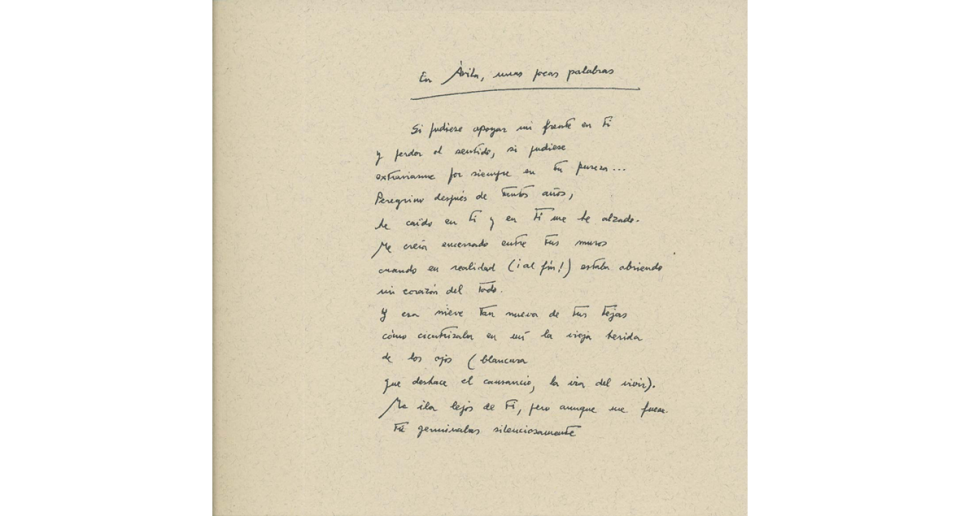 En Ávila, unas pocas palabras
Si pudiese apoyar mi frente en ti
y perder el sentido, si pudiese
extraviarme por siempre en tu pureza...
Peregrino después de tantos años,
he caído en ti y en ti me he alzado.
Me creía encerrado entre tus muros
cuando en realidad (¡al fin!) estaba abriendo
mi corazón del todo.
Y esa nieve tan nueva de tus tejas
cómo cicatrizaba en mí la vieja herida
de los ojos (blancura
que deshace el cansancio, la ira del vivir).
Me iba lejos de ti, pero aunque me fuese
tú germinabas silenciosamente